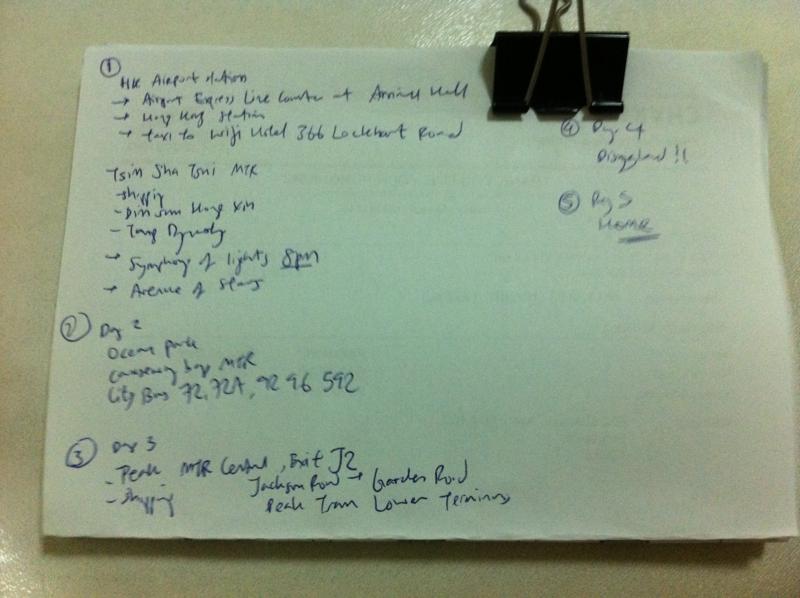 ①
HK Airport station
→ Airport Express Line Counter at Arrival Hall
→ Hong Kong Station
→ taxi to Wifi Hotel 366 Lockhart Road
Tsim Sha Tsui MTR
- shopping
- Dim Sum Hang
- Tang Dynasty
→ Symphony of lights 8pm
→ Avenue of Stars
② Day 2
Ocean park
Causeway bay MTR
City Bus 72, 72A, 92 96 592
③ Day 3
- Peak MTR Central, Exit J2
- shopping Jackson Road → Garden Road
Peak Tram Lower Terminus
④ Day 4
Disneyland !!
⑤ Day 5
HOME